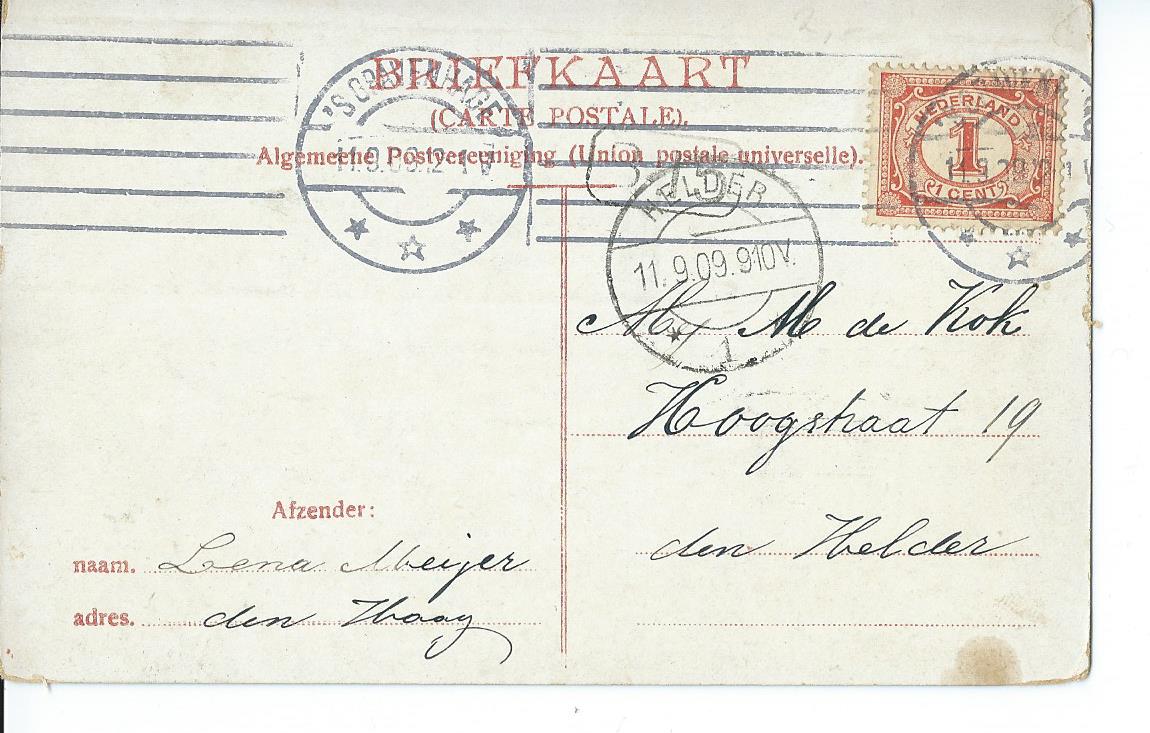 BRIEFKAART
(CARTE POSTALE).
Algemeene Postvereeniging (Union postale universelle).
'SGRAVENHAGE
11.9.09.12-1 V
NEDERLAND
1
1 CENT
HELDER
11.9.09.910V.
1
M M de Kok
Hoogstraat 19
den Helder
Afzender:
naam. Lena Meijer
adres. den Haag